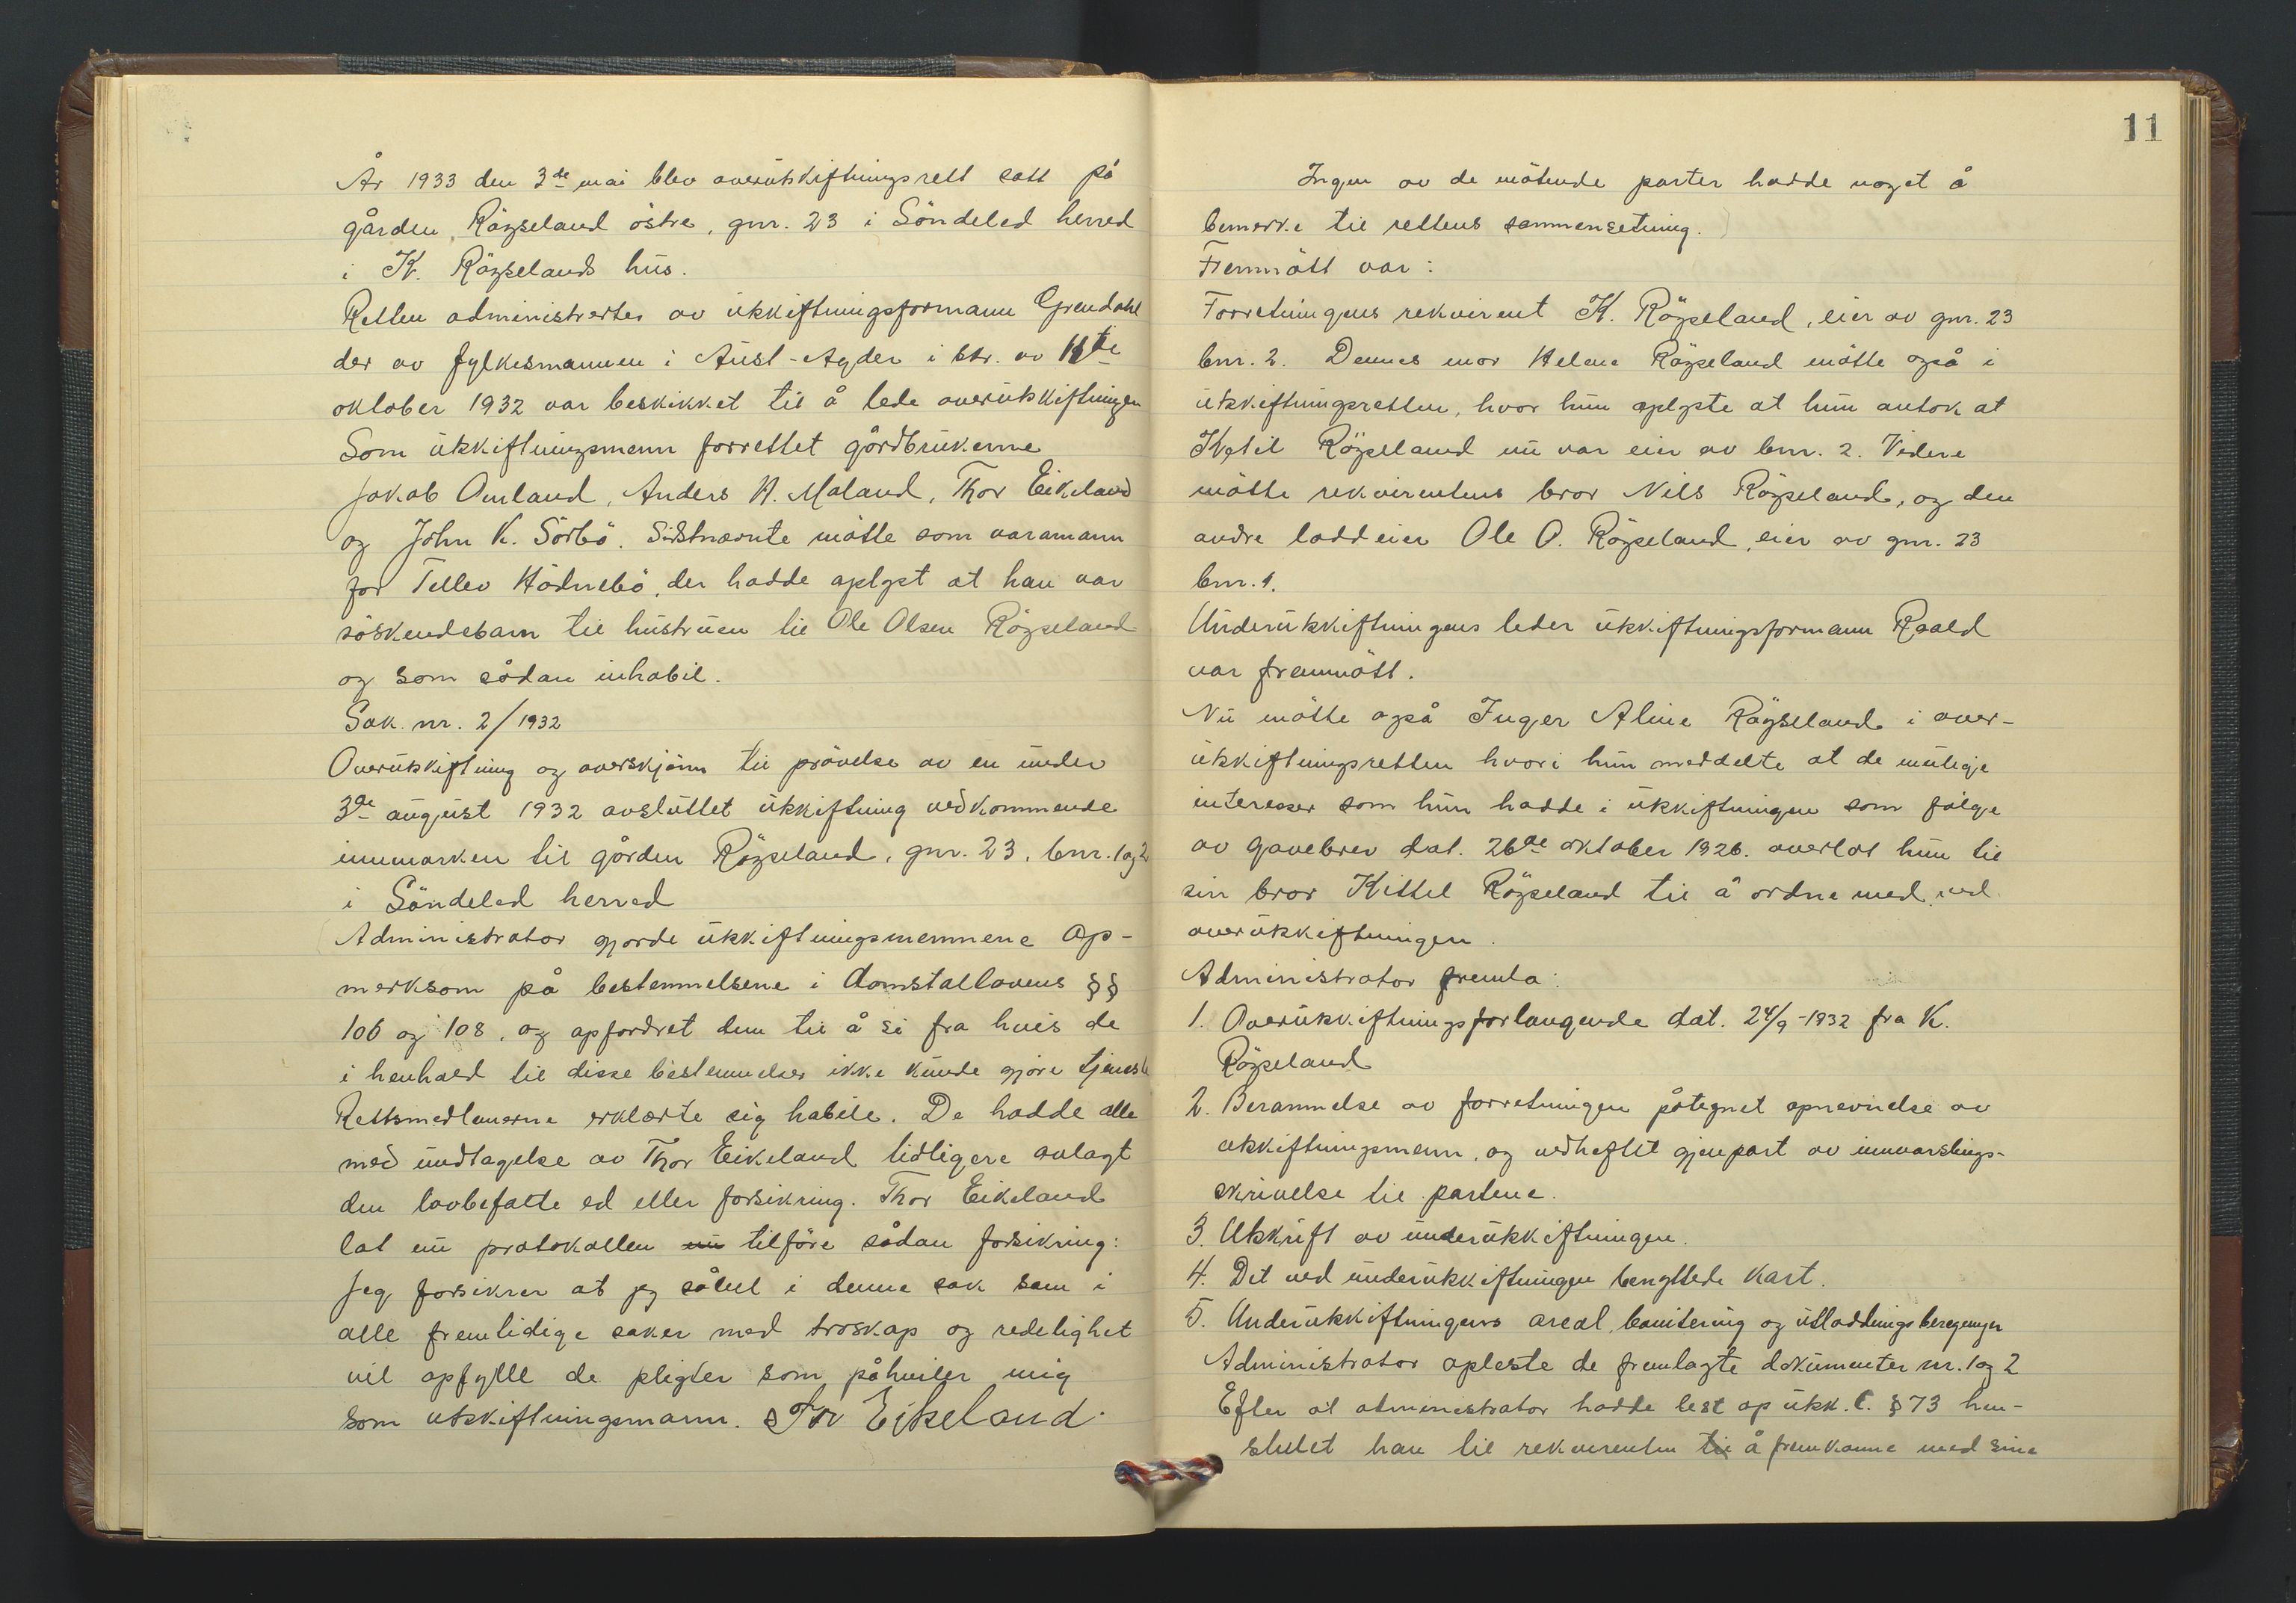 År 1933 den 3de mai blev overutskiftningsrett satt på
gården Röyseland östre, gnr. 23 i Söndeled herred
i K. Röyselands hus.
Retten administrertes av utskiftningsformann Grendahl
der av fylkesmannen i Aust-Agder i btr. av 11te
oktober 1932 var beskikket til å lede overutskiftningen
Som utskiftningsmenn forrettet gårdbrukerne
Jakob Omland, Anders H. Moland, Thor Eikeland
og John K. Sörbö. Sistnevnte mötte som varamann
for Tellev Hödnebö, der hadde oplyst at han var
söskendebarn til hustruen til Ole Olsen Röyseland
og som sådan inhabil.
Sak nr. 2/1932
Overutskiftning og overskjönn til prövelse av en under
3de august 1932 avsluttet utskiftning vedkommende
innmarken til gården Röyseland, gnr. 23, bnr. 1 og 2
i Söndeled herred
Administrator gjorde utskiftningsmennene op-
merksom på bestemmelsene i domstollovens §§
106 og 108, og opfordret dem til å si fra hvis de
i henhold til disse bestemmelser ikke kunde gjöre tjeneste
Rettsmedlemerne erklærte sig habile. De hadde alle
med undtagelse av Thor Eikeland tidligere avlagt
den lovbefalte ed eller forsikring. Thor Eikeland
lot nu protokollen nu tilföre sådan forsikring:
Jeg forsikrer at jeg såvel i denne sak som i
alle fremtidige saker med troskap og redelighet
vil opfylle de pligter som påhviler mig
som utskiftningsmann. Tor Eikeland.
11
Ingen av de mötende parter hadde noget å
bemerke til rettens sammensetning.
Fremmött var:
Forretningens rekvirent K. Röyseland, eier av gnr. 23
bnr. 2. Dennes mor Helene Röyseland mötte også i
utskiftningsretten, hvor hun oplyste at hun antok at
Ketil Röyseland nu var eier av bnr. 2. Videre
mötte rekvirentens bror Nils Röyseland, og den
andre loddeier Ole O. Röyseland, eier av gnr. 23
bnr. 1.
Underutskiftningens leder utskiftningsformann Roald
var fremmött.
Nu mötte også Inger Aline Röyseland i over-
utskiftningsretten hvori hun meddelte at de mulige
interesser som hun hadde i utskiftningen som fölge
av gavebrev dat. 26de oktober 1926. overlot hun til
sin bror Kittel Röyseland til å ordne med ved
overutskiftningen.
Administrator fremla:
1. Overutskiftningsforlangende dat. 24/9-1932 fra K.
Röyseland
2. Berammelse av forretningen påtegnet opnevnelse av
utskiftningsmenn, og vedheftet gjenpart av innvarslings-
skrivelse til partene.
3. Utskrift av underutskiftningen.
4. Det ved underutskiftningen benyttede kart.
5. Underutskiftningens areal, bonitering og utlodningsberegninger
Administrator opleste de fremlagte dokumenter nr. 1 og 2
Efter at administrator hadde lest op utsk. l. § 73 hen-
stillet han til rekvirenten til å fremkomme med sine